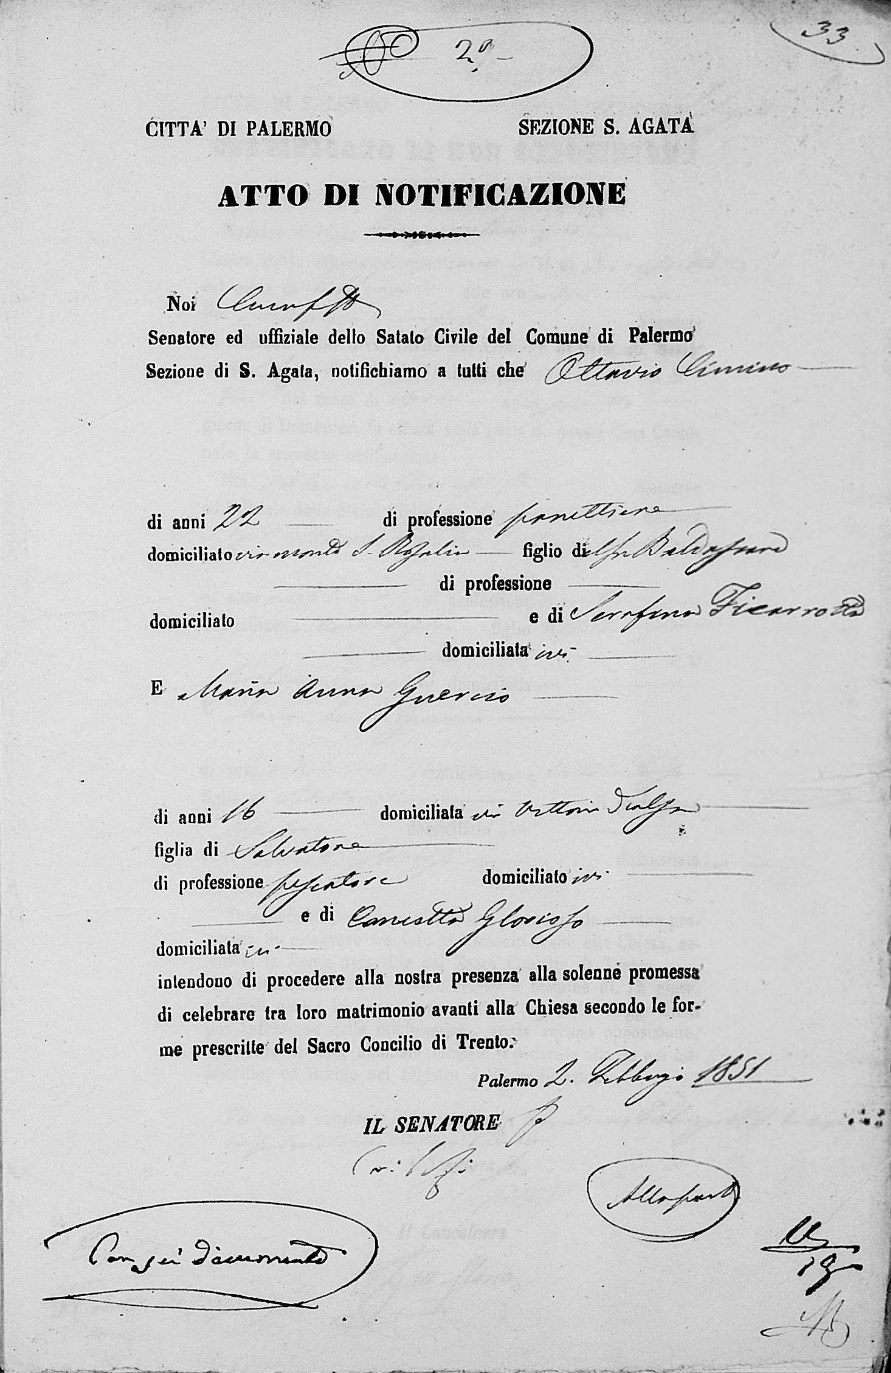 2º
33
CITTA' DI PALERMO SEZIONE S. AGATA
ATTO DI NOTIFICAZIONE
Noi
Senatore ed uffiziale dello Satato Civile del Comune di Palermo
Sezione di S. Agata, notifichiamo a tutti che Ottavio Cimino
di anni 22 di professione panettiere
domiciliato via monte S. Rosalia figlio di Baldassare
di professione
domiciliato e di Serafina Ficarrotta
domiciliata ivi
E Maria Anna Guercio
di anni 16 domiciliata
figlia di Salvatore
di professione pescatore domiciliato ivi
e di Concetta Glorioso
domiciliata ivi
intendono di procedere alla nostra presenza alla solenne promessa
di celebrare tra loro matrimonio avanti alla Chiesa secondo le for-
me prescritte del Sacro Concilio di Trento.
Palermo 2. Febbraio 1851
IL SENATORE
Con sei documenti